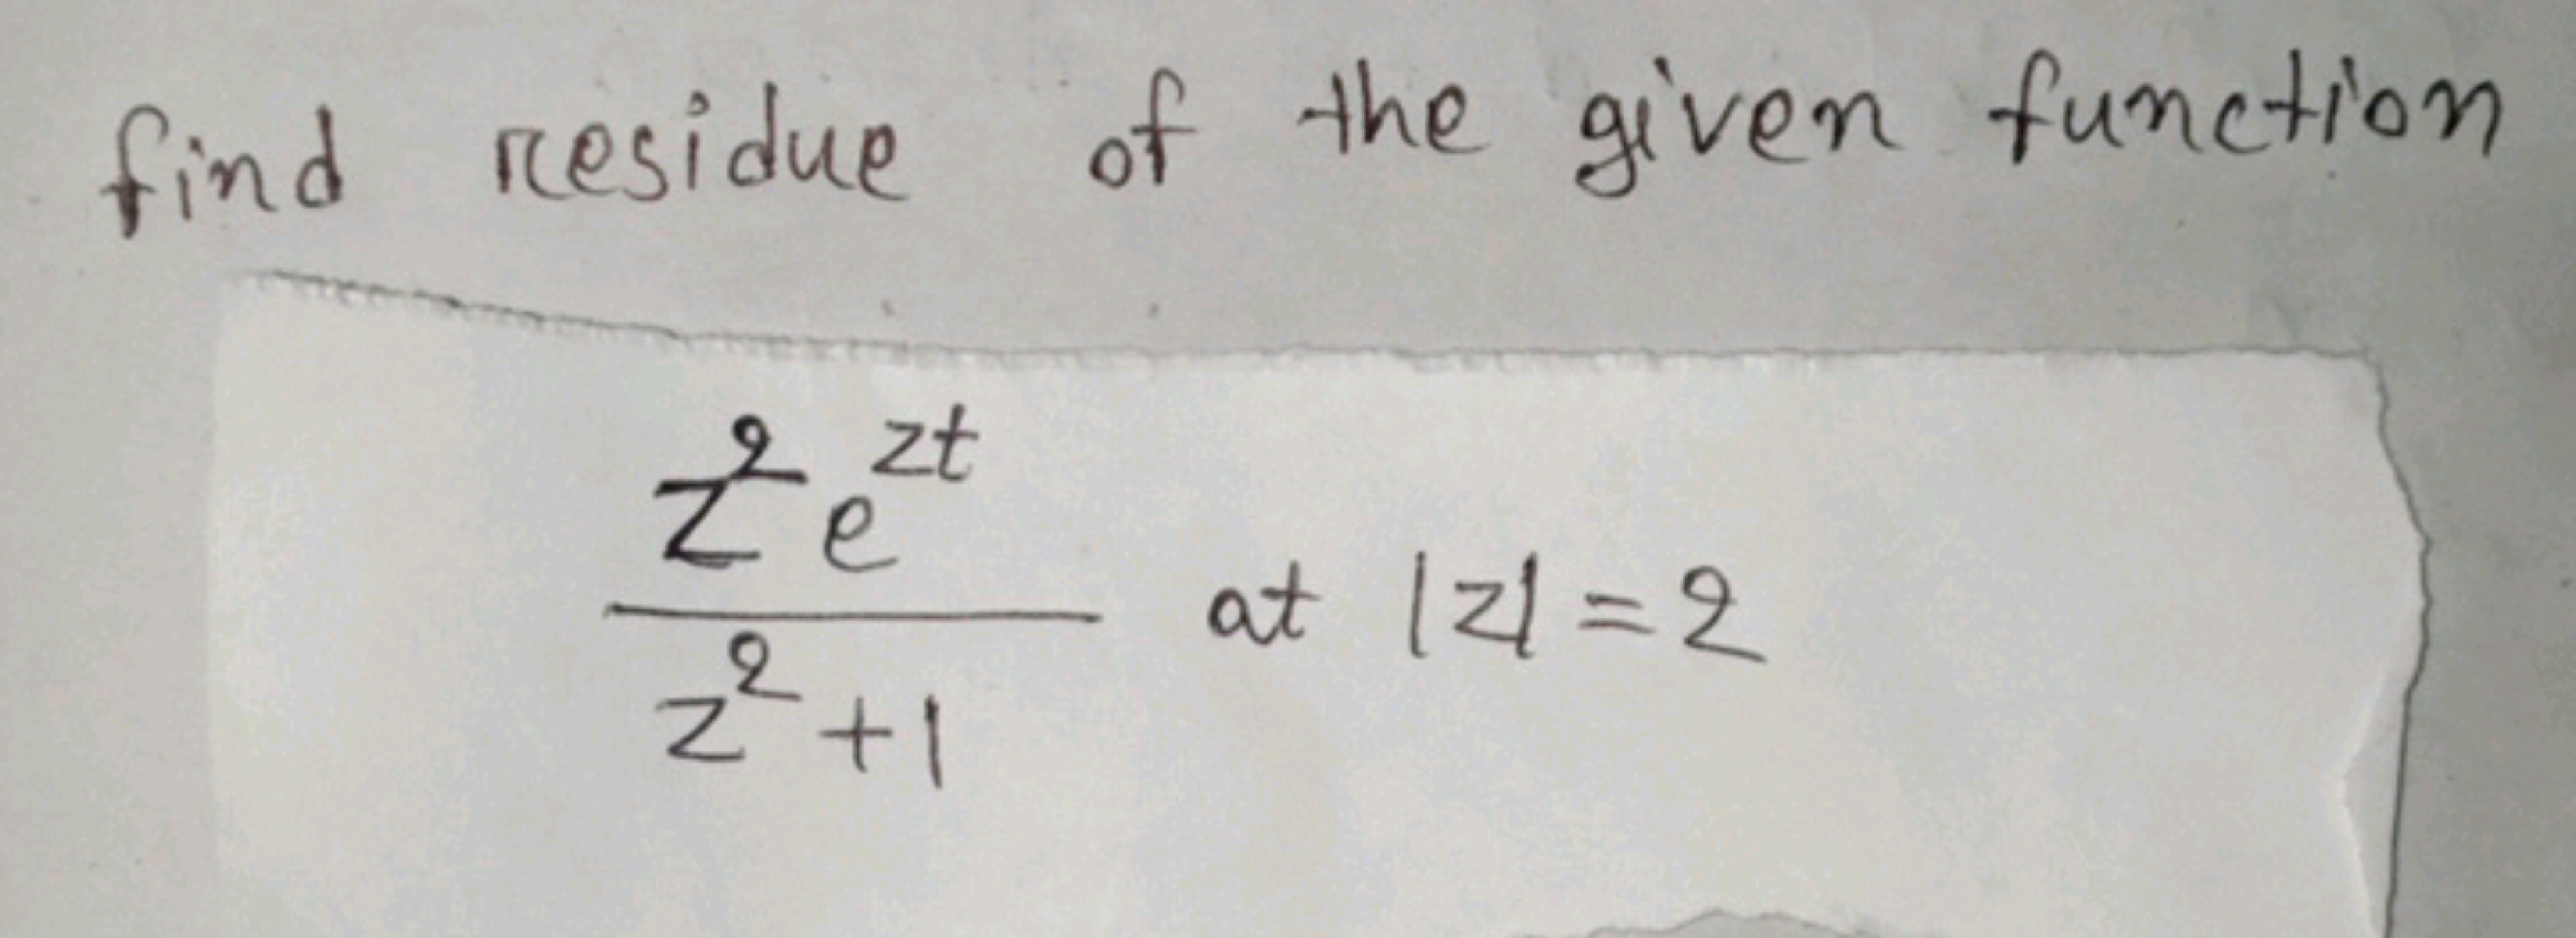 find residue of the given function
z²e^{zt}
z²+1
at |z|=2